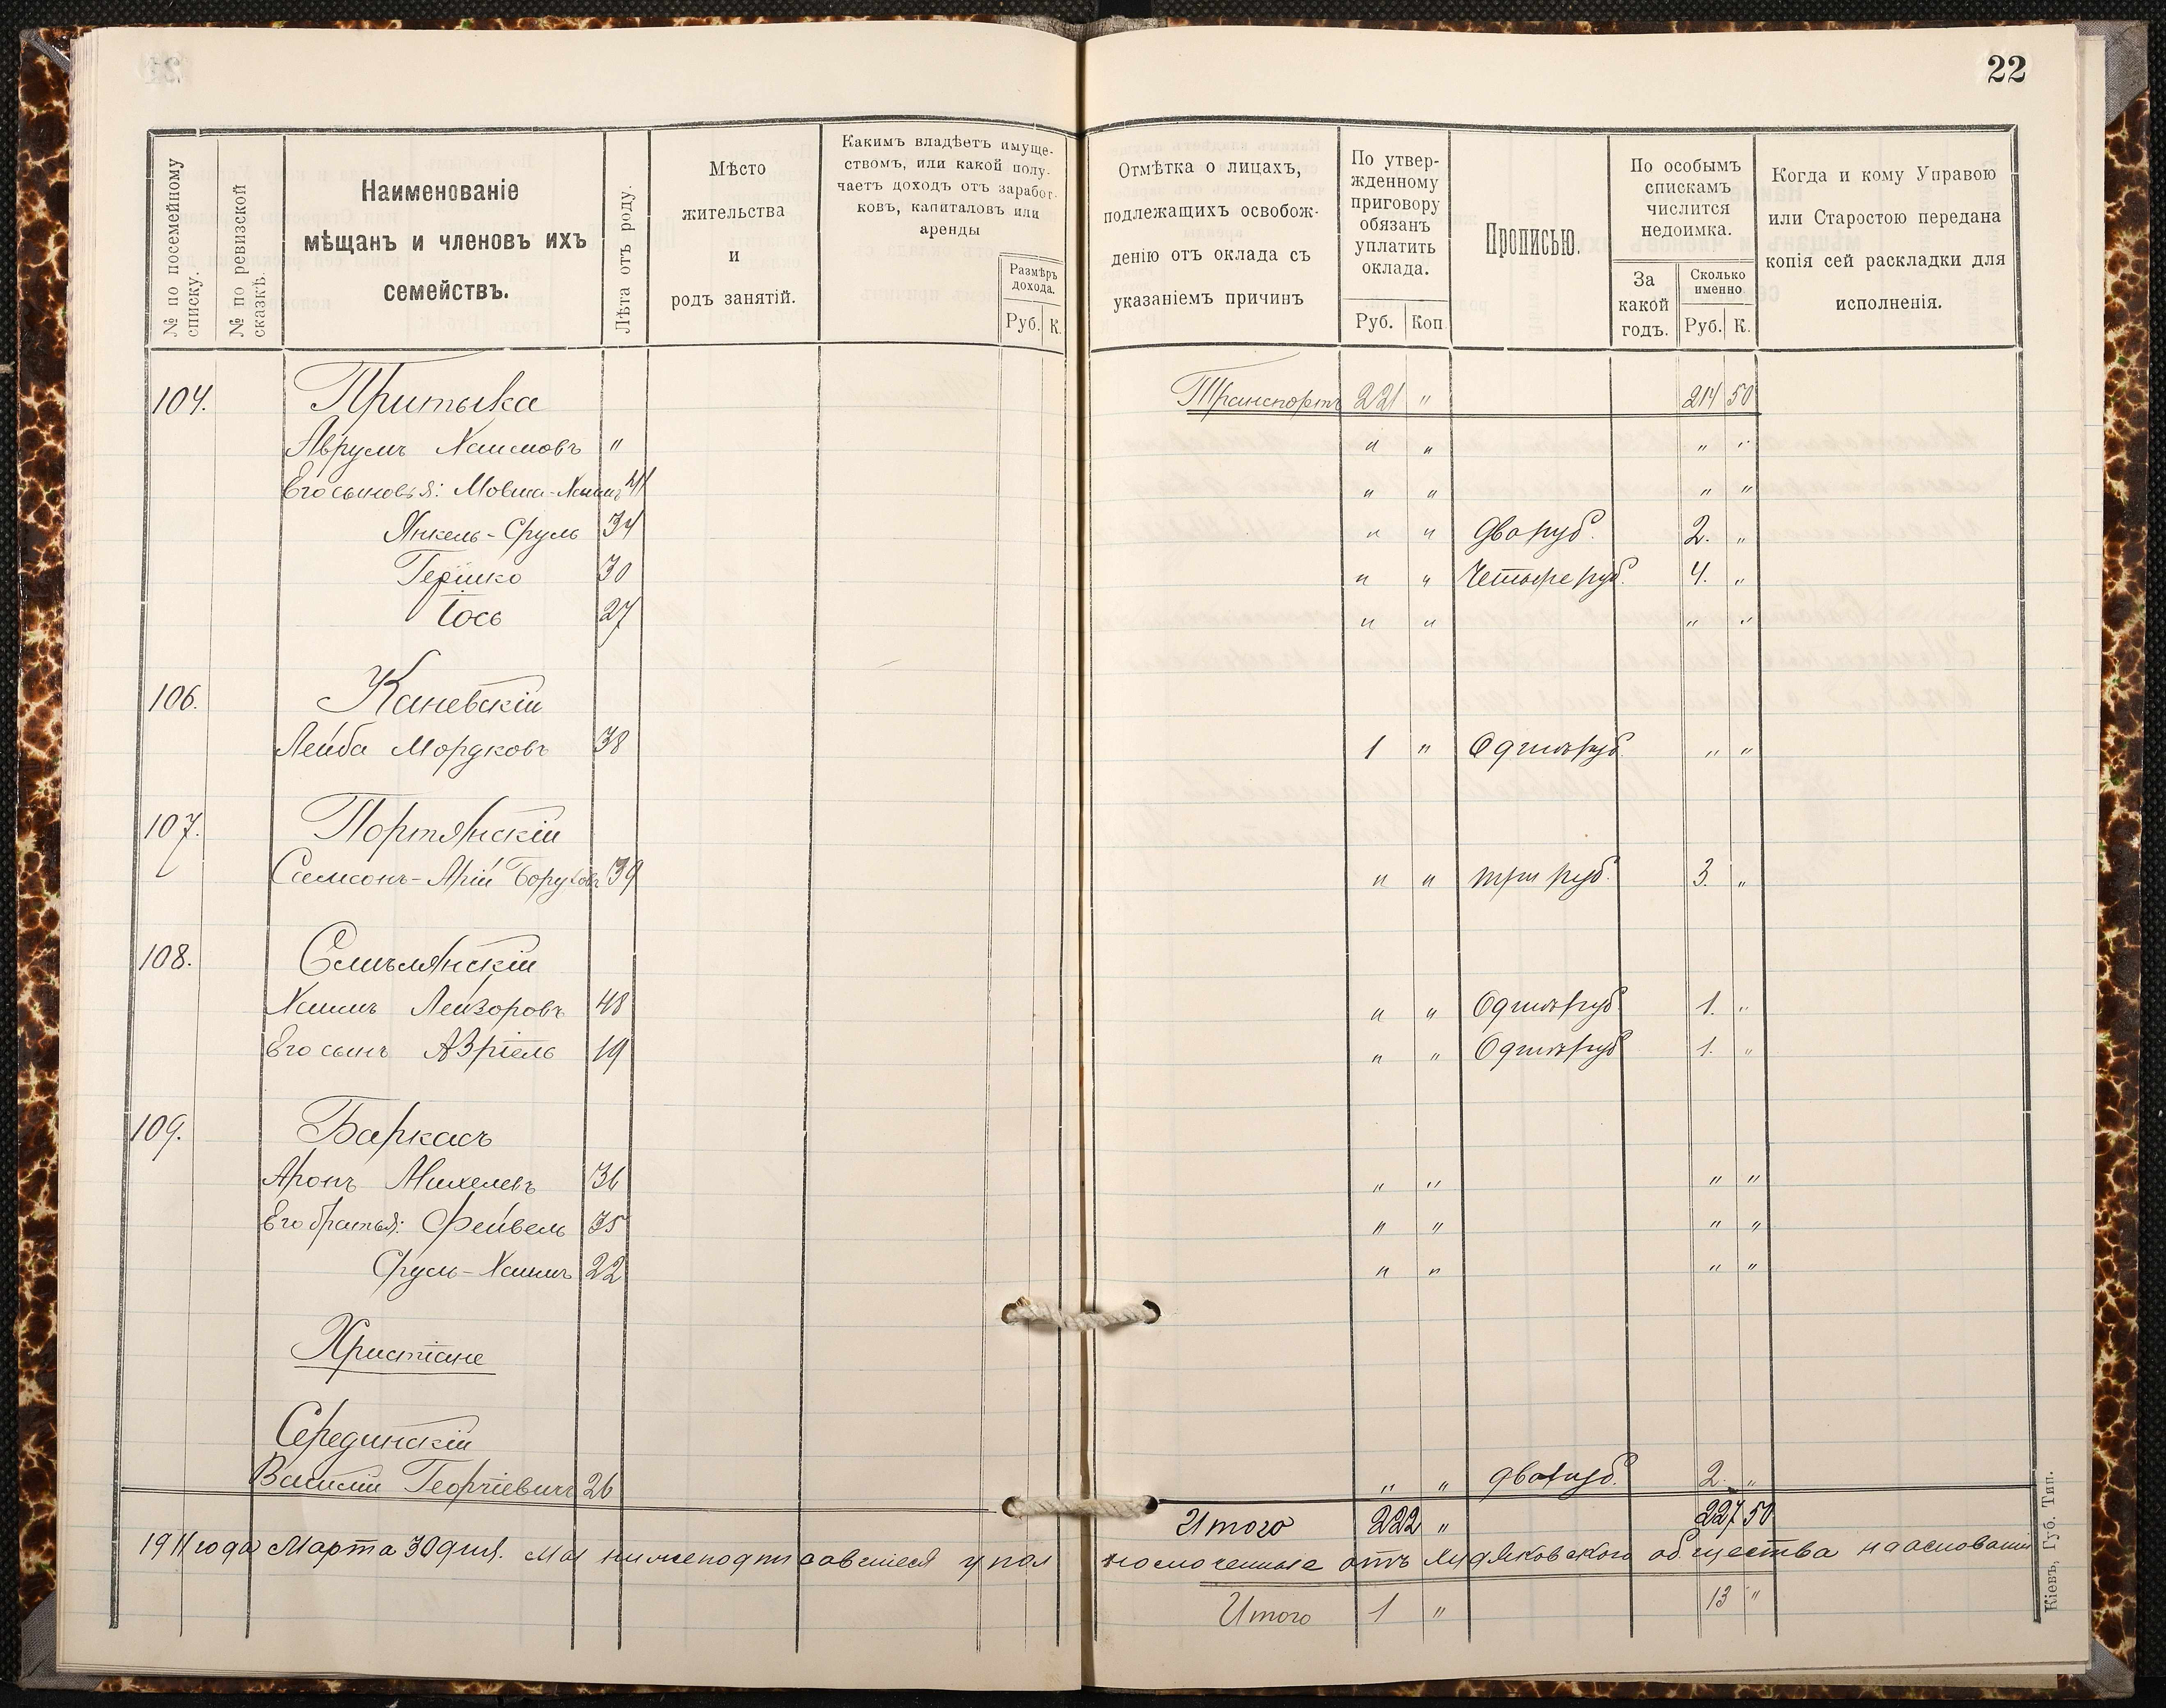 22
№ по посемейному списку.
№ по ревизской сказкѣ.
Наименованіе
мѣщанъ и членовъ ихъ
семействъ.
Лѣта отъ роду.
Мѣсто
жительства
и
родъ занятій.
Какимъ владѣетъ имуще-
ствомъ, или какой полу-
чаетъ доходъ отъ заработ-
ковъ, капиталовъ или
аренды
Размѣръ
дохода.
Руб. К.
Отмѣтка о лицахъ,
подлежащихъ освобож-
денію отъ оклада съ
указаніемъ причинъ
По утвер-
жденному
приговору
обязанъ
уплатить
оклада.
Руб. Коп.
Прописью.
По особымъ
спискамъ
числится
недоимка.
За
какой
годъ.
Сколько
именно
Руб. К.
Когда и кому Управою
или Старостою передана
копія сей раскладки для
исполненія.
104. Притыка Транспортъ 221 " 214 50
Аврумъ Хаимовъ " " " " "
Его сыновья: Мовша-Хаимъ 41 " " " "
Янкель-Сруль 34 " " два руб. 2. "
Гершко 30 " " Четыре руб. 4. "
Іось 27 " " " "
106. Каневскій
Лейба Мордковъ 38 1 " Одинъ руб. " "
107. Портянскій
Самсонъ-Арій Боруховъ 39 " " три руб. 3. "
108. Смѣлянскій
Хаимъ Лейзоровъ 48 " " Одинъ руб. 1. "
Его сынъ Азріель 19 " " Одинъ руб 1. "
109. Баркасъ
Аронъ Михелевъ 36 " " " "
Его братья: Фейвель 35 " " " "
Сруль-Хаимъ 22 " " " "
Христіане
Серединскій
Василій Георгіевичъ 26 " " два руб. 2. "
Итого 222 " 227 50
1911 года Марта 30 дня. Мы нижеподписавшіеся упол номоченные отъ Худяковского общества на основаніи
Итого 1 " 13 "
Кіевъ, Губ. Тип.